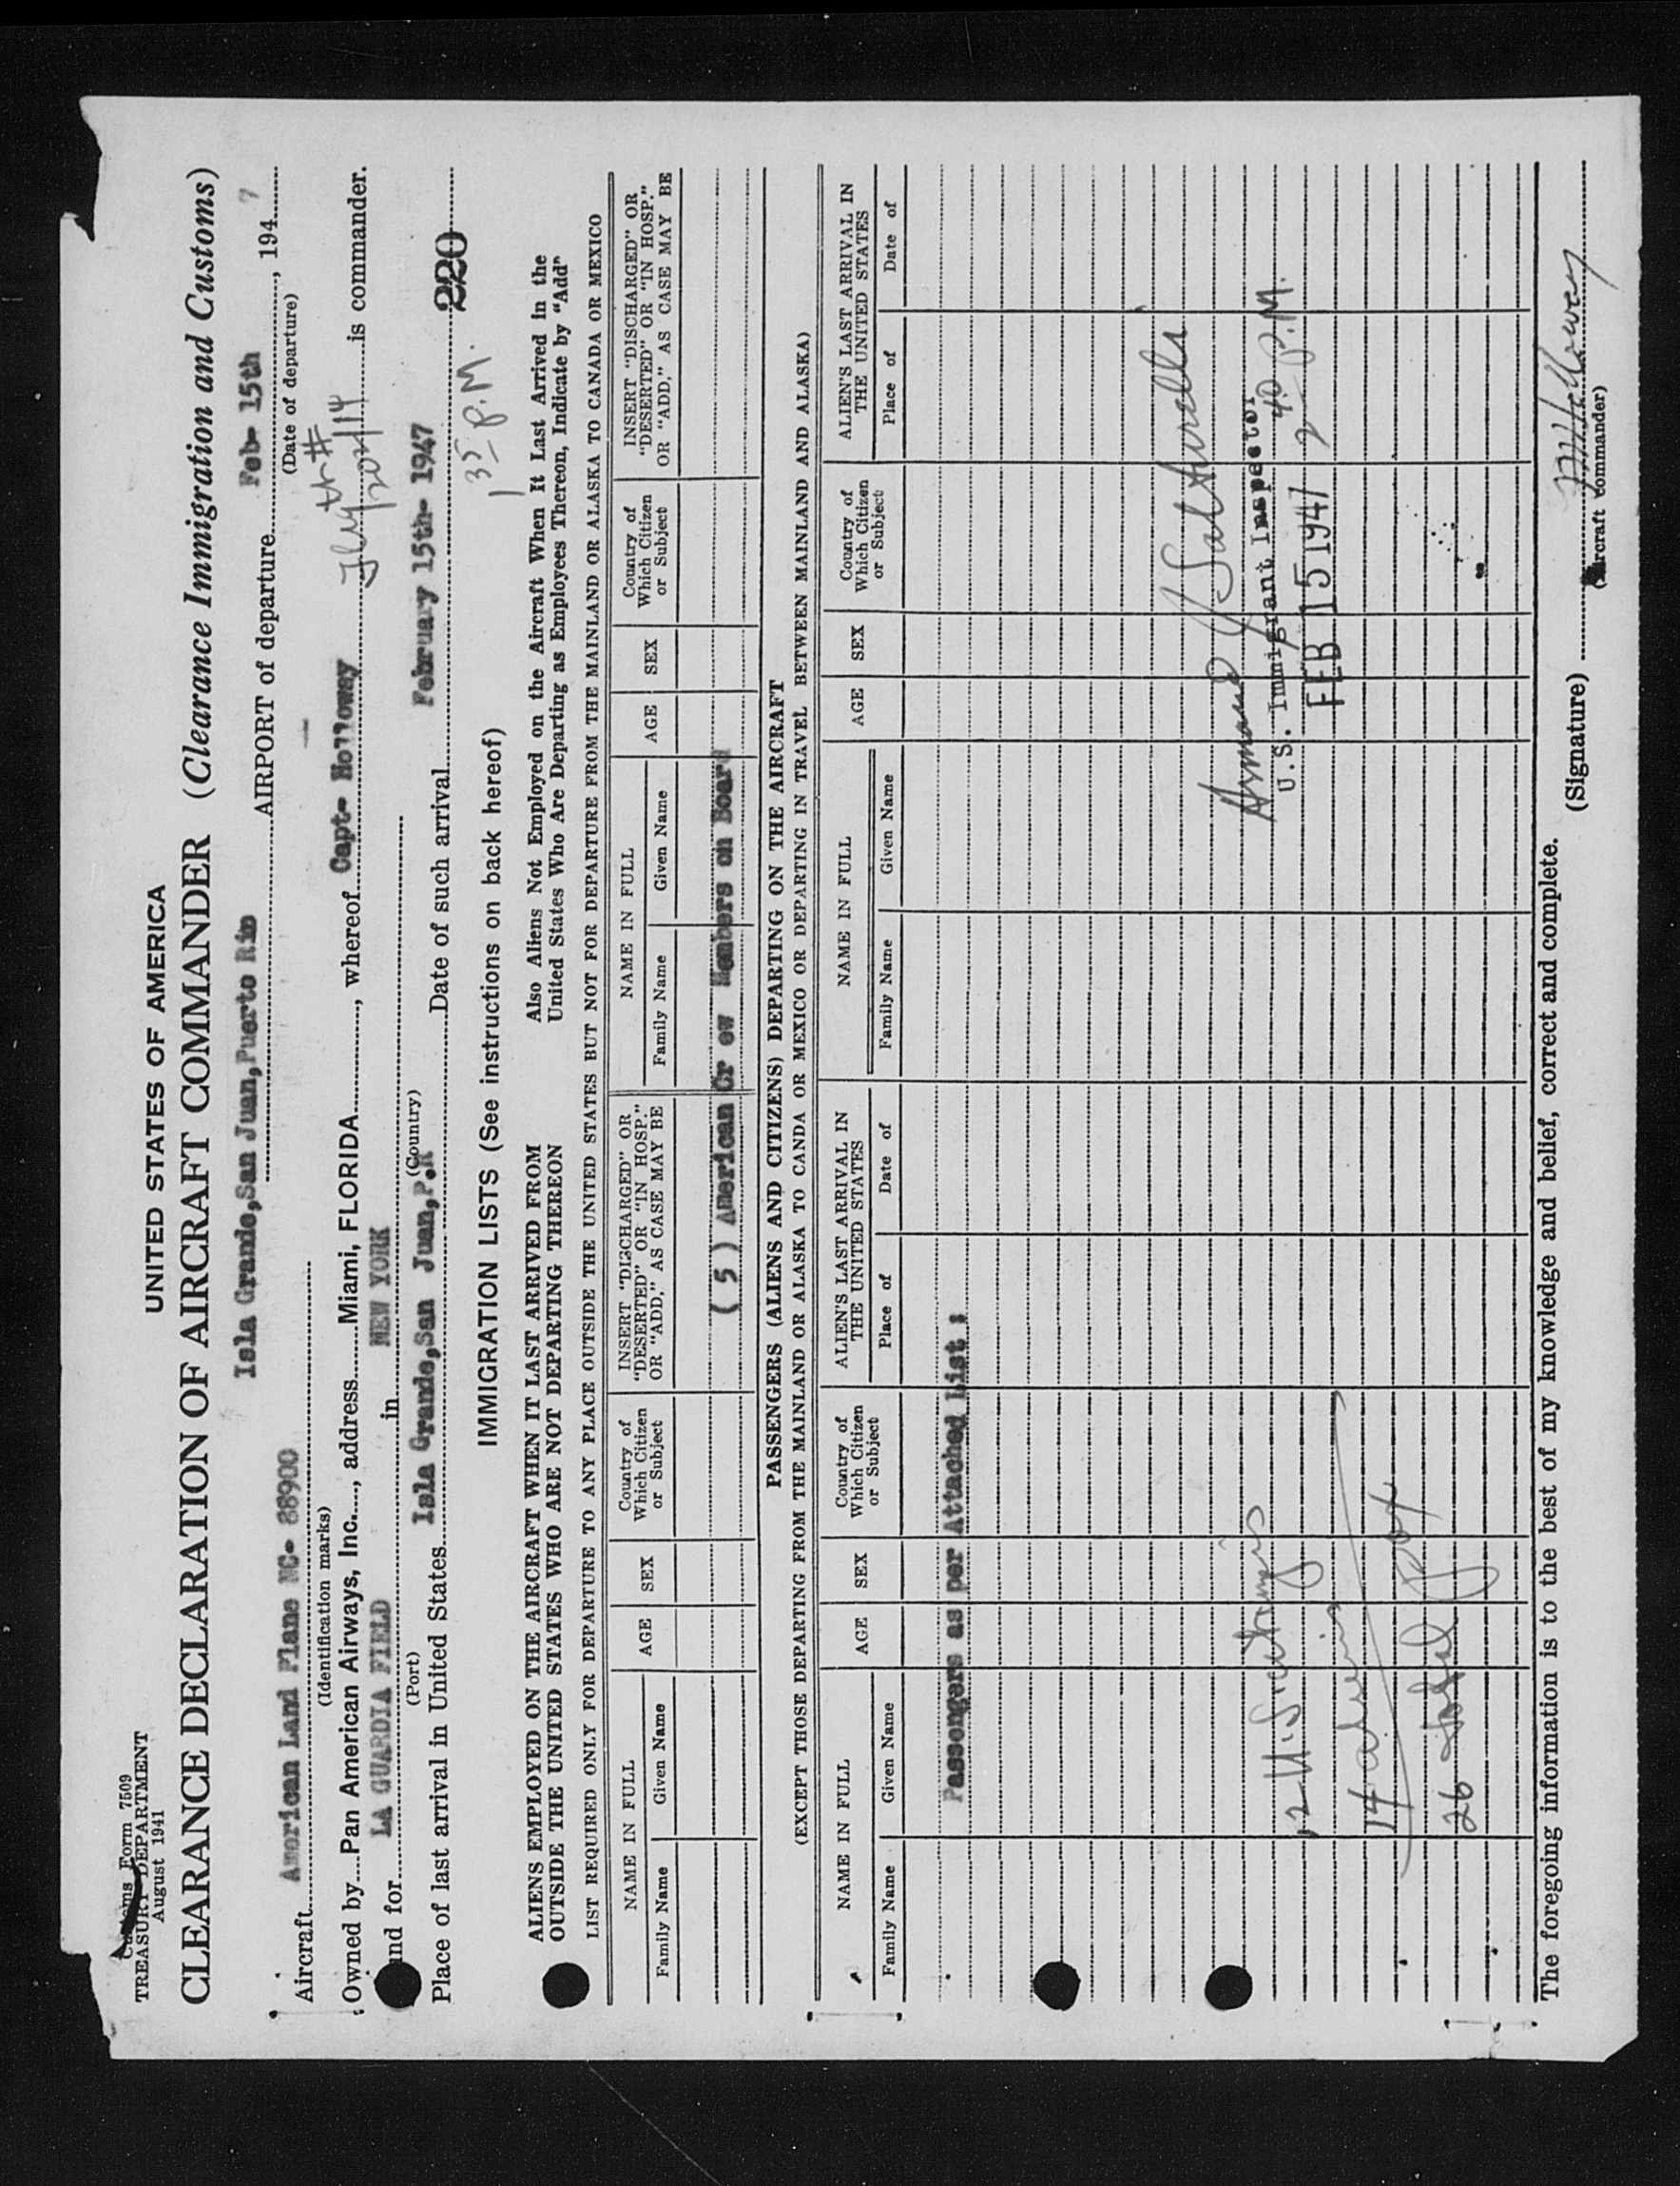 Customs Form 7509
TREASURY DEPARTMENT
August 1941
UNITED STATES OF AMERICA
CLEARANCE DECLARATION OF AIRCRAFT COMMANDER (Clearance Immigration and Customs)
Isla Grande,San Juan,Puerto Rio AIRPORT of departure Feb- 15th, 194 7
(Date of departure)
Aircraft American Land Plane NC- 88900
(Identification marks)
Flight #
202/14
Owned by Pan American Airways, Inc., address Miami, FLORIDA, whereof Capt- Holloway is commander.
und for LA GUARDIA FIELD in NEW YORK
(Port) (Country)
Place of last arrival in United States Isla Grande,San Juan,P.R Date of such arrival February 15th- 1947
220
1 35 P.M.
IMMIGRATION LISTS (See instructions on back hereof)
ALIENS EMPLOYED ON THE AIRCRAFT WHEN IT LAST ARRIVED FROM
OUTSIDE THE UNITED STATES WHO ARE NOT DEPARTING THEREON
Also Aliens Not Employed on the Aircraft When It Last Arrived in the
United States Who Are Departing as Employees Thereon, Indicate by "Add"
LIST REQUIRED ONLY FOR DEPARTURE TO ANY PLACE OUTSIDE THE UNITED STATES BUT NOT FOR DEPARTURE FROM THE MAINLAND OR ALASKA TO CANADA OR MEXICO
NAME IN FULL
Family Name Given Name
AGE
SEX
Country of
Which Citizen
or Subject
INSERT "DISCHARGED" OR
"DESERTED" OR "IN HOSP."
OR "ADD," AS CASE MAY BE
NAME IN FULL
Family Name Given Name
AGE
SEX
Country of
Which Citizen
or Subject
INSERT "DISCHARGED" OR
"DESERTED" OR "IN HOSP."
OR "ADD," AS CASE MAY BE
( 5 ) American Cr ew Members on Board
PASSENGERS (ALIENS AND CITIZENS) DEPARTING ON THE AIRCRAFT
(EXCEPT THOSE DEPARTING FROM THE MAINLAND OR ALASKA TO CANDA OR MEXICO OR DEPARTING IN TRAVEL BETWEEN MAINLAND AND ALASKA)
NAME IN FULL
Family Name Given Name
AGE
SEX
Country of
Which Citizen
or Subject
ALIEN'S LAST ARRIVAL IN
THE UNITED STATES
Place of Date of
NAME IN FULL
Family Name Given Name
AGE
SEX
Country of
Which Citizen
or Subject
ALIEN'S LAST ARRIVAL IN
THE UNITED STATES
Place of Date of
Passengers as per Attached List :
Armand
U.S. Immigrant Inspector
FEB 15 1947 2 40 P.M.
12 U.S.
14 aliens
26 total
The foregoing information is to the best of my knowledge and belief, correct and complete.
(Signature) Holloway
(Aircraft commander)